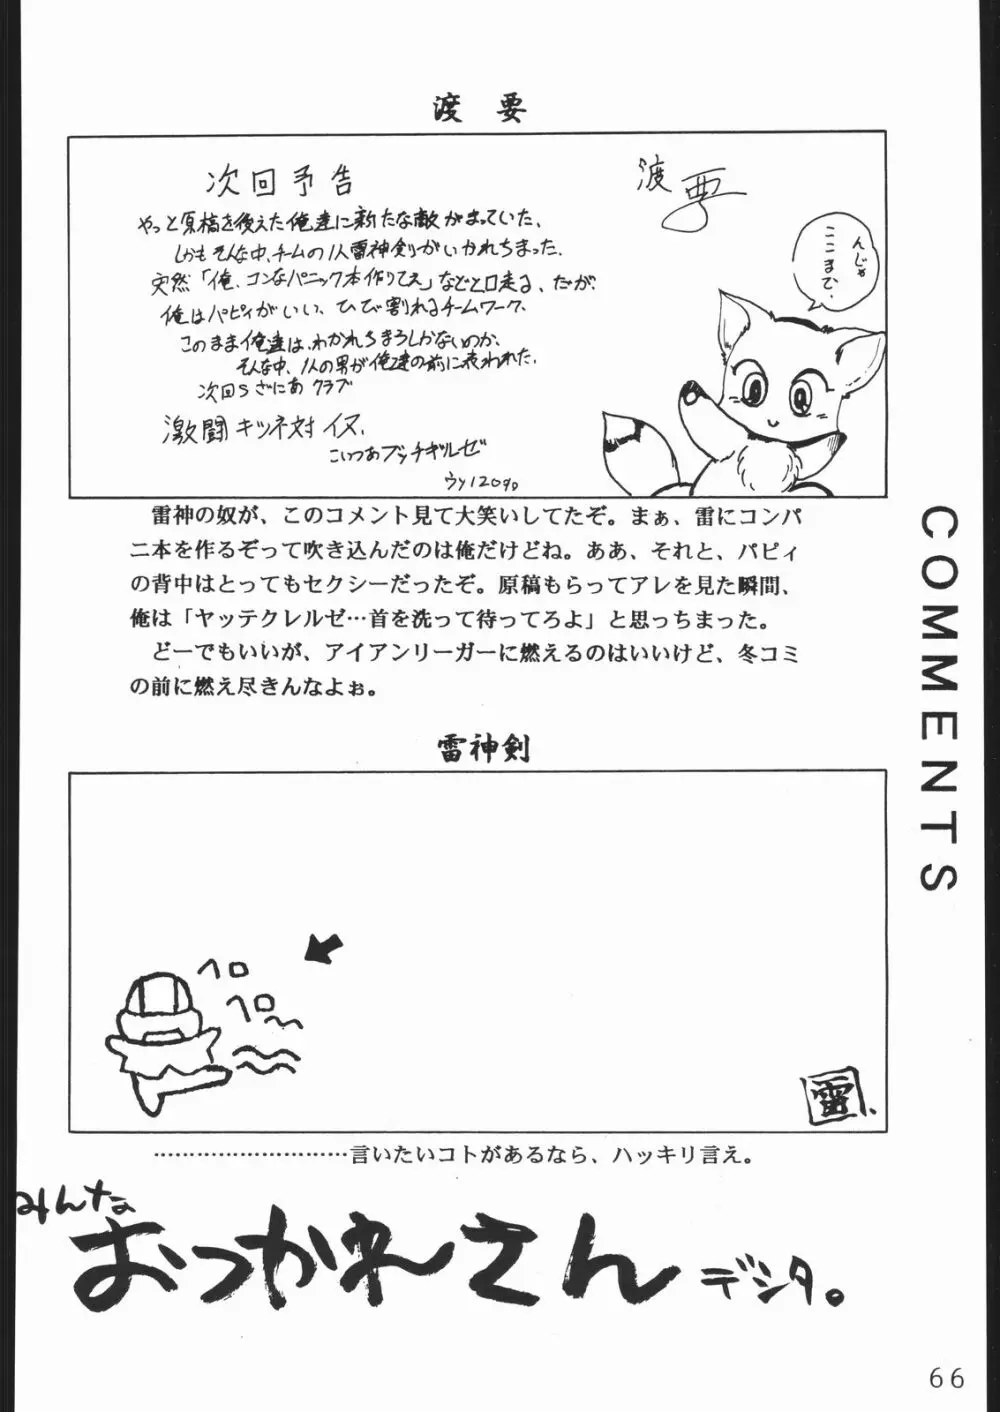 渡 要
次回予告
渡 要
やっと原稿を終えた俺達に新たな敵がまっていた、
しかもそんな中、チームの1人雷神剣がいかれちまった。
突然「俺、コンなパニック本作りてえ」などと口走る、だが、
俺はパピィがいい、ひび割れるチームワーク、
このまま俺達は、わかれちまうしかないのか、
そんな中、1人の男が俺達の前に表われた。
次回Sざにあ クラブ
激闘 キツネ対イヌ、
こいつあブッチギルゼ
んじゃ
ここまで、
雷神の奴が、このコメント見て大笑いしてたぞ。まぁ、雷にコンパ
ニ本を作るぞって吹き込んだのは俺だけどね。ああ、それと、パピィ
の背中はとってもセクシーだったぞ。原稿もらってアレを見た瞬間、
俺は「ヤッテクレルゼ…首を洗って待ってろよ」と思っちまった。
どーでもいいが、アイアンリーガーに燃えるのはいいけど、冬コミ
の前に燃え尽きんなよぉ。
COMMENTS
雷神剣
ヘロ
ヘロ
雷
………………………言いたいコトがあるなら、ハッキリ言え。
みんな
おつかれさん デシタ。
66